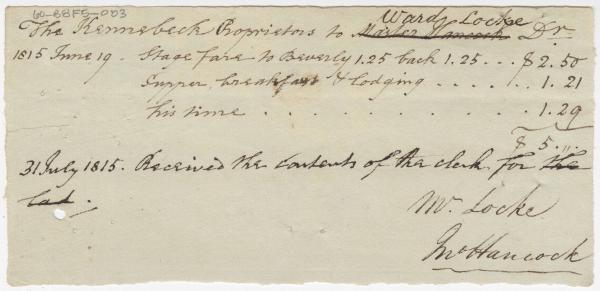 60-88FS-003
Ward Locke
The Kennebeck Proprietors to Master Hancock Dr
1815 June 19. Stage fare to Beverly 1.25 back 1.25 ... $2.50
Supper, breakfast & lodging . . . . . 1.21
his time . . . . . . . . . 1.29
$5.,,,
31 July 1815. Received the contents of the clerk for the
lad.
Mr. Locke
Jno Hancock